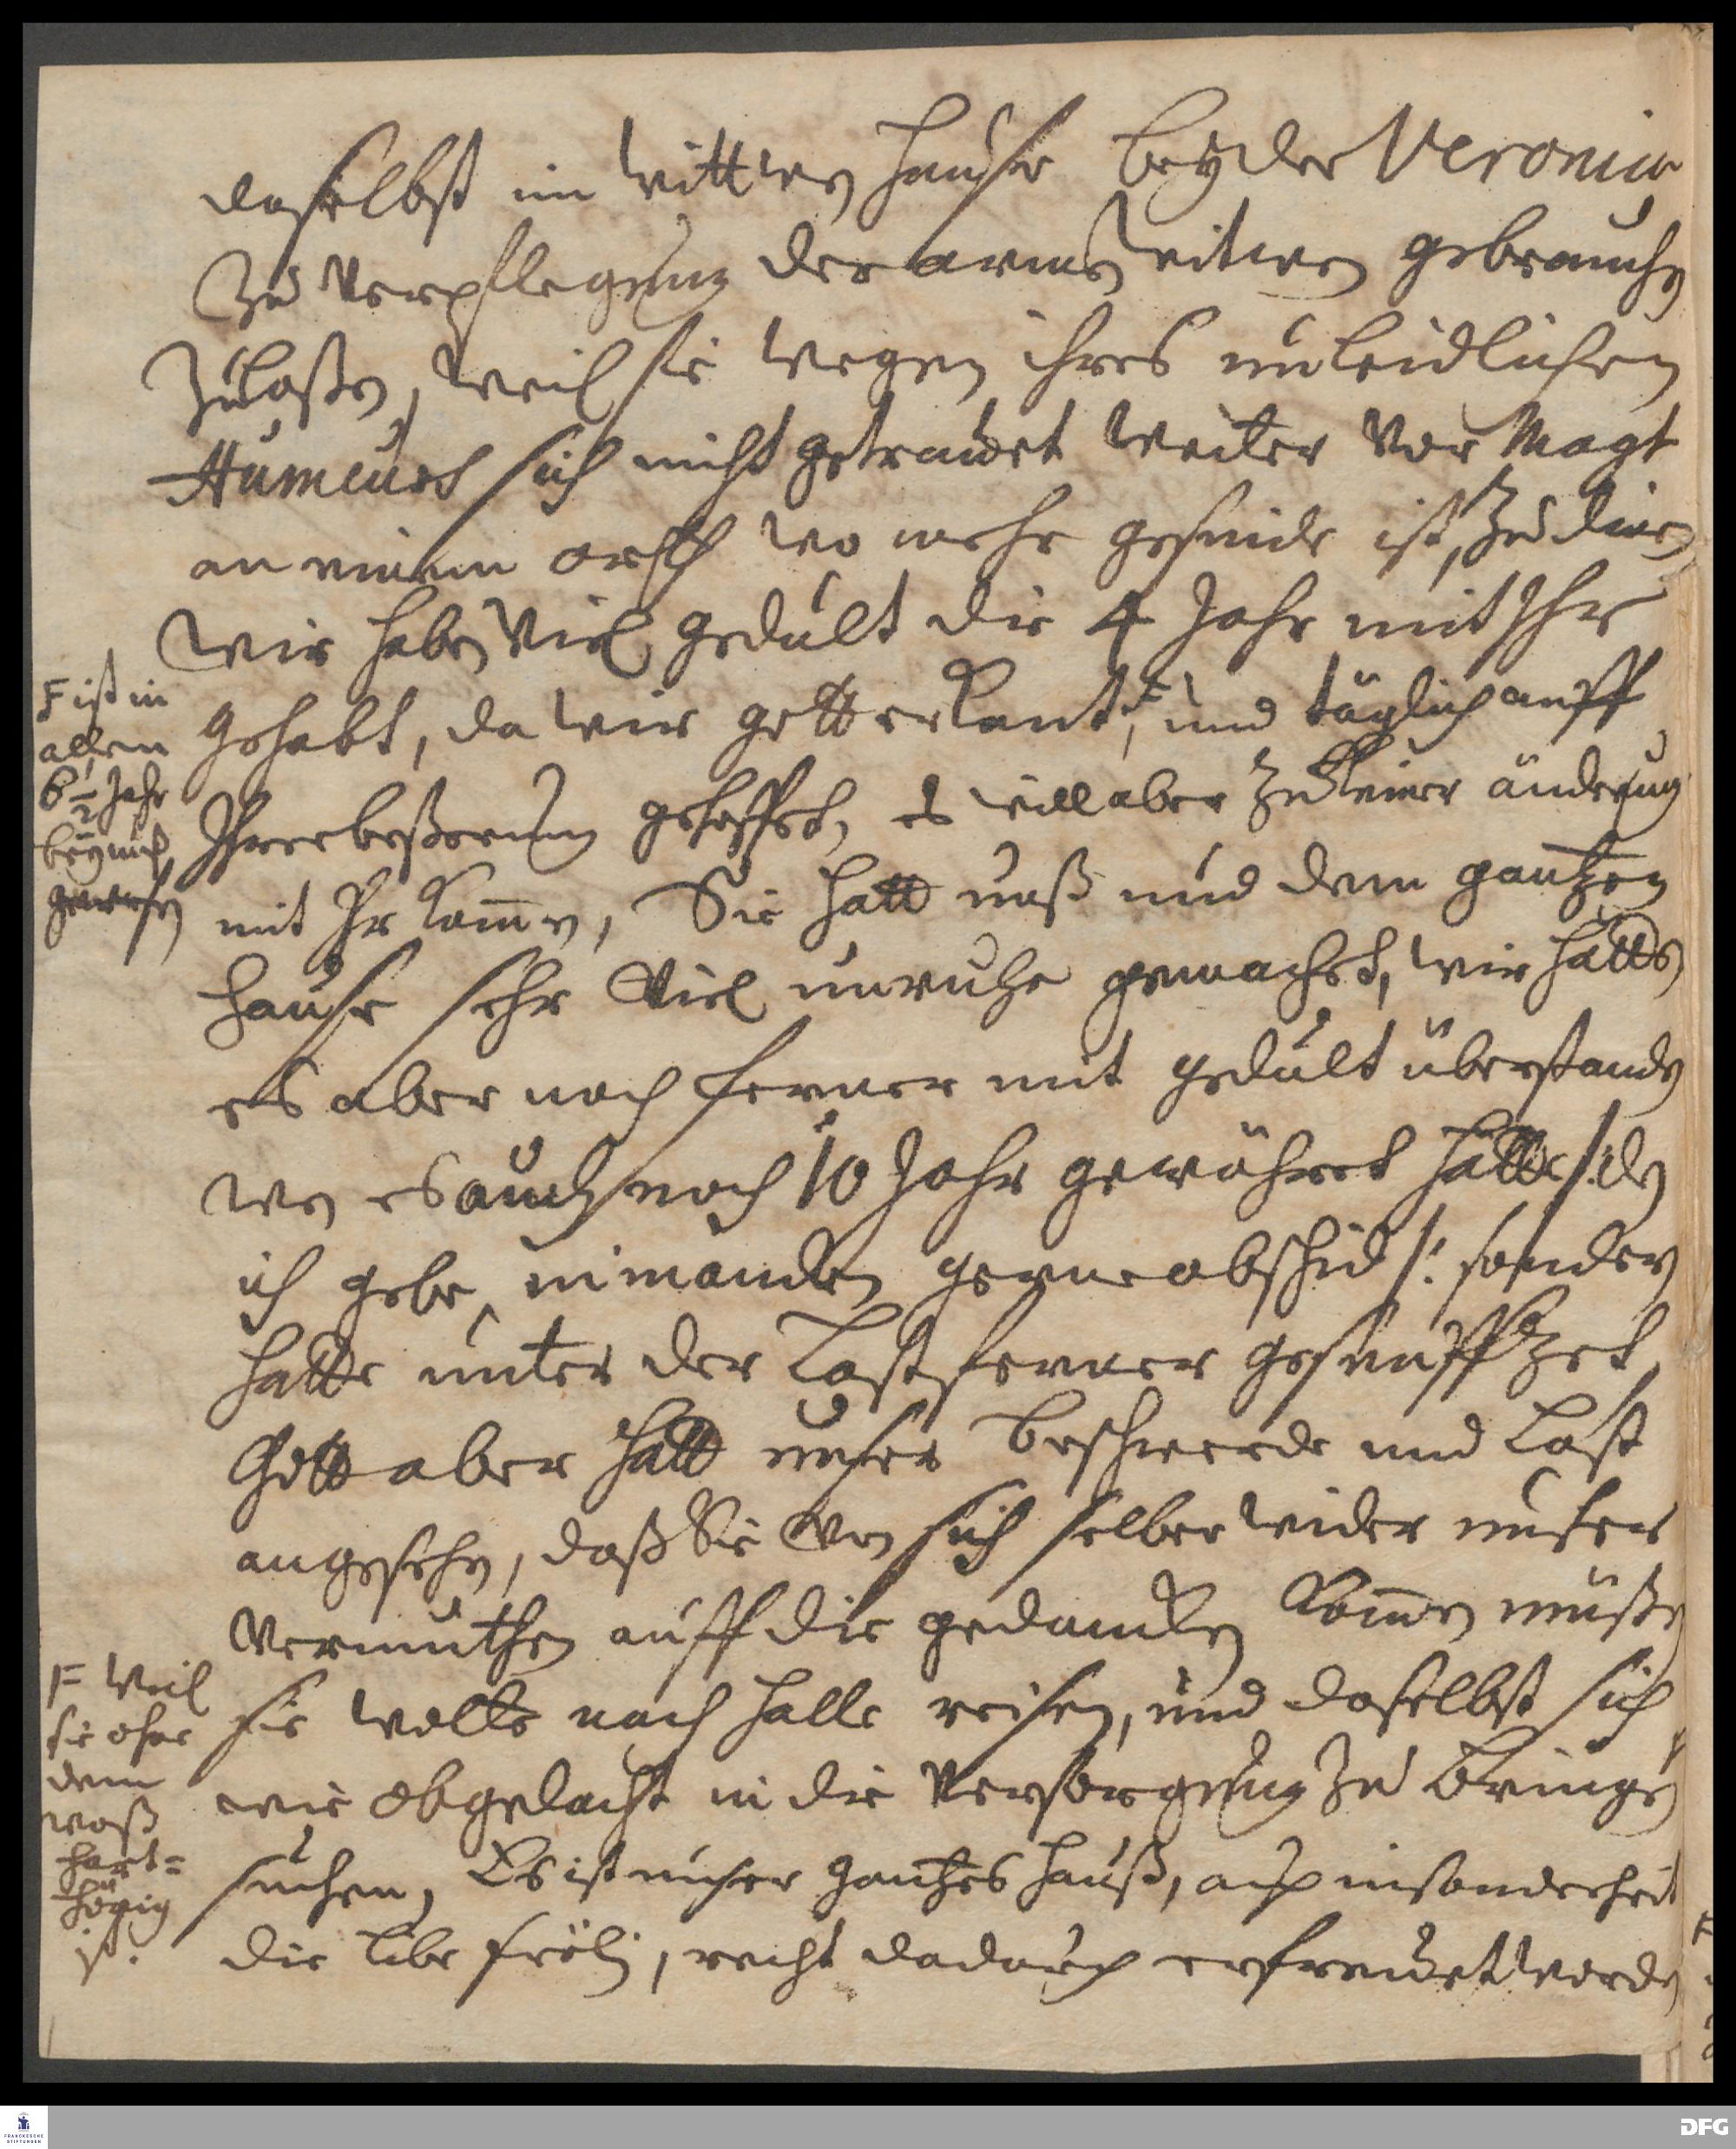 daselbst im Wittwen Hause bey der Veronica
zu Verpflegung der armen Witwen gebrauchen
zulaßen, weil sie wegen ihres unleidlichen
Humeurs sich nicht getrauet weiter vor Magt
an einem orth wo mehr gesinde ist, zu dienen
Wir haben Viel gedult die 4 Jahr mit Ihr
gehabt, da wir gott erkant, F und täglich auff
Ihre beßerung gehoffet, es will aber zu keiner änderung
mit Ihr kommen, Sie hatt unß und dem gantzen
Hause sehr Viel unruhe gemachet, wir hätten
es aber noch ferner mit gedult überstanden
wen es auch noch 10 Jahr gewähret hätte /: den
ich gebe nimanden gerne abschid :/ sondern
hätte unter der Last ferner geseuffzet
Gott aber hatt unser beschwerde und Last
angesehen, daß Sie Von sich selber wider unser
Vermuthen auff die gedancken kommen müßen
sie wolte nach Halle reisen, und daselbst sich F
wie obgedacht in die Versorgung zu bringen
suchen, Es ist unser gantzes Hauß, auch insonderheit
die liebe Fröle, recht dadurch erfreuet worden
F ist in
allem
6 1/2 Jahr
bey mich
gewesen
F Weil
sie ohne
dem
waß
hart=
hörig
ist.
FRANCKESCHE
STIFTUNGEN
DFG